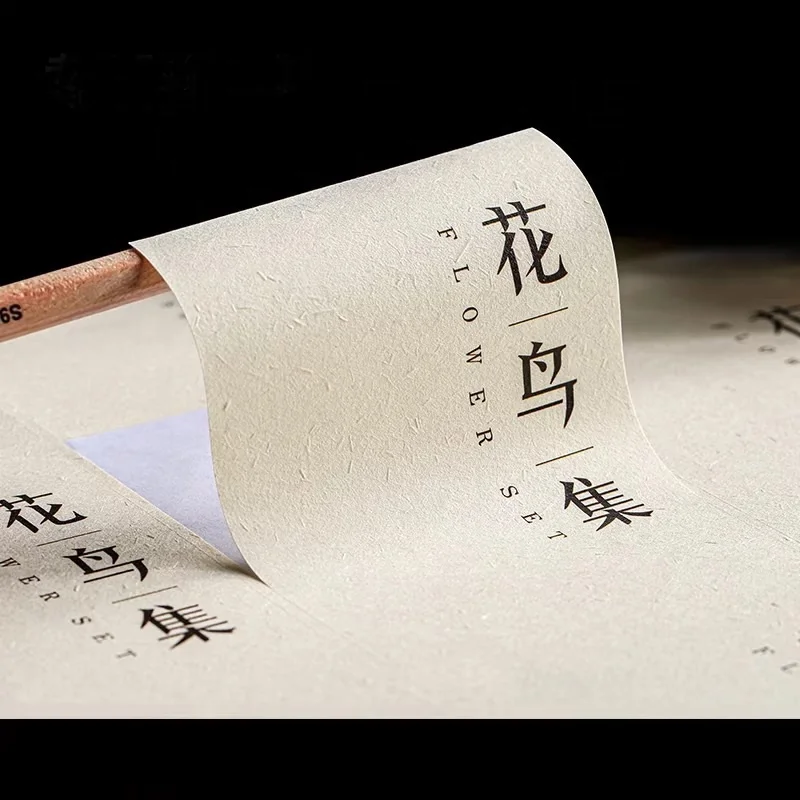 花
鸟
集
FLOWER SET
花
鸟
集
WER SET
S9
花
FL